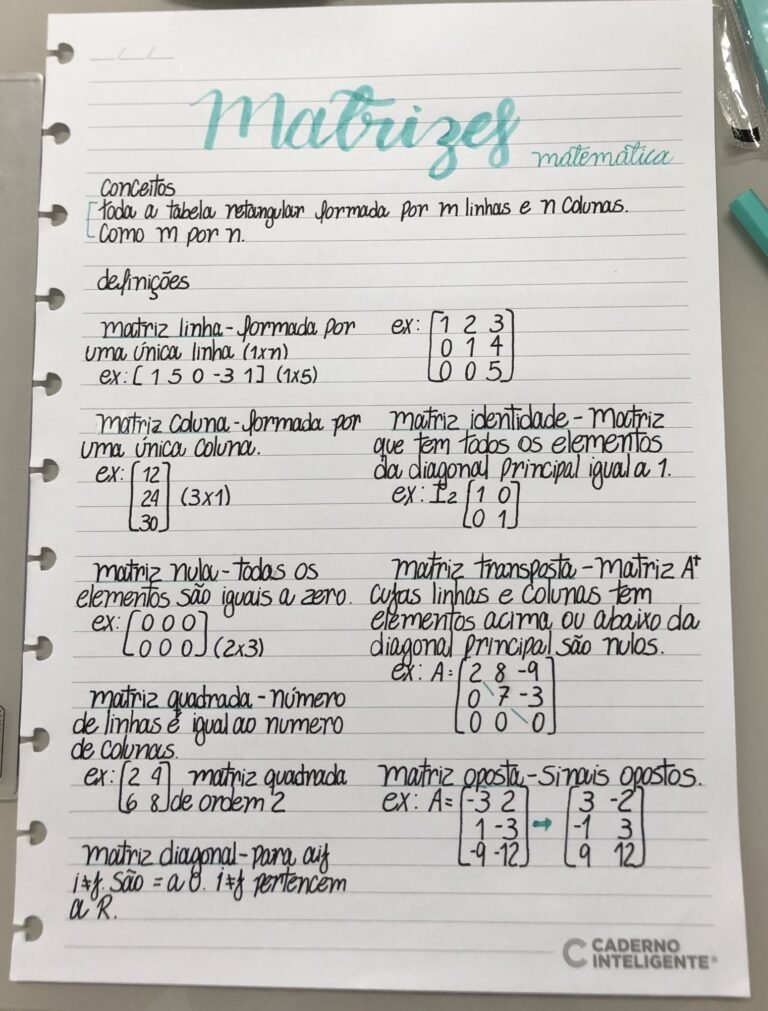 Matrizes
matemática
conceitos
toda a tabela retangular formada por m linhas e n colunas.
Como m por n.
definições
matriz linha - formada por
uma única linha (1xn)
ex: [ 1 5 0 -3 1 ] (1x5)
matriz coluna - formada por
uma única coluna.
ex: [12
24 (3x1)
30]
matriz nula - todas os
elementos são iguais a zero.
ex: [0 0 0
0 0 0] (2x3)
matriz quadrada - número
de linhas é igual ao numero
de colunas.
ex: [2 4 matriz quadrada
6 8] de ordem 2
matriz diagonal - para aij
i≠j. São = a 0. i≠j pertencem
a R.
ex: [1 2 3
0 1 4
0 0 5]
matriz identidade - Matriz
que tem todos os elementos
da diagonal principal igual a 1.
ex: I2 [1 0
0 1]
matriz transposta - Matriz At
cujas linhas e colunas tem
elementos acima ou abaixo da
diagonal principal são nulos.
ex: A= [2 8 -9
0 7 -3
0 0 0]
matriz oposta - Sinais opostos.
ex: A= [-3 2 → [3 -2
1 -3 -1 3
-9 -12] 9 12]
CADERNO
INTELIGENTE®